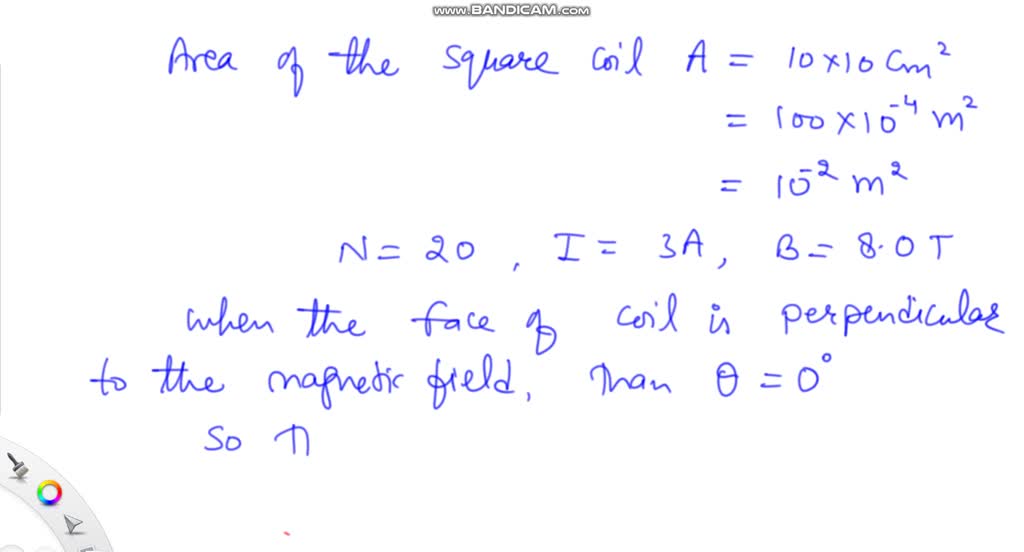 www.BANDICAM.com
Area of the square coil A = 10×10 Cm²
= 100×10⁻⁴ m²
= 10⁻² m²
N = 20 , I = 3A, B = 8.0 T
when the face of coil is perpendicular
to the magnetic field, Than θ = 0°
So